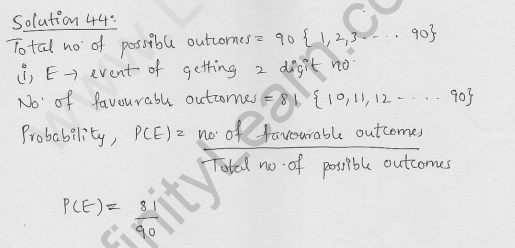 Solution 44:
Total no. of possible outcomes = 90 { 1, 2, 3 - - - . 90}
(i, E → event of getting 2 digit no.
No. of favourable outcomes = 81 { 10, 11, 12 - . . . 90}
Probability, P(E) = no. of favourable outcomes
Total no. of possible outcomes
P(E) = 81
90
finityLearn.com